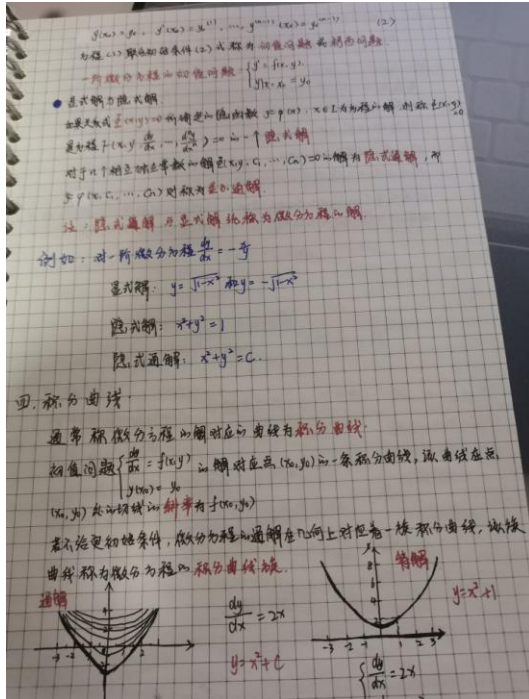 y(x₀)=y₀, y'(x₀)=y₀⁽¹⁾, ..., y⁽ⁿ⁻¹⁾(x₀)=y₀⁽ⁿ⁻¹⁾ (2)
方程(1)取初始条件(2)式称为初值问题
一阶微分方程的初值问题: { y'=f(x,y),
y|x=x₀ = y₀
● 显式解与隐式解
如果关系式Φ(x,y)=0所确定的隐函数 y=φ(x), x∈I 为方程的解,则称Φ(x,y)=0
是方程F(x,y,dy/dx,…,dⁿy/dxⁿ)=0的一个隐式解
对于n个相互独立常数的解Φ(x,y,C₁,…,Cₙ)=0的解为隐式通解,而
y=φ(x,C₁,…,Cₙ)则称为显式通解.
注:隐式通解与显式解统称为微分方程的解.
例如:对一阶微分方程 dy/dx = -x/y
显式解: y=√1-x² 和 y=-√1-x²
隐式解: x²+y²=1
隐式通解: x²+y²=C.
四. 积分曲线.
通常称微分方程的解对应的曲线为积分曲线.
初值问题{ dy/dx = f(x,y) 的解对应点(x₀,y₀)的一条积分曲线,该曲线在点
y(x₀)=y₀
(x₀,y₀)处的切线的斜率为f(x₀,y₀)
若不给定初始条件,微分方程的通解在几何上对应着一族积分曲线,该族
曲线称为微分方程的积分曲线族.
通解
4
2
-3 -2 2
dy/dx = 2x
y=x²+C
特解
8
6
4
2
-3 -2 -1 0 1 2 3
y=x²+1
{ dy/dx = 2x